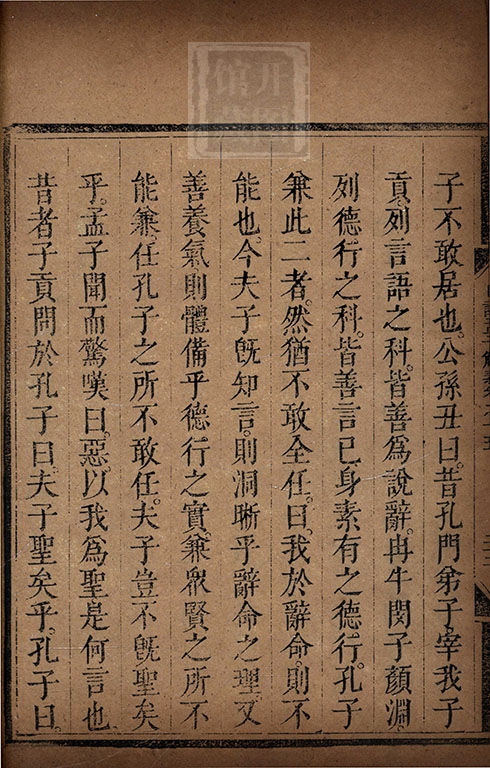 子不敢居也。公孫丑曰。昔孔門弟子。宰我子
貢。列言語之科。皆善爲說辭。冉牛閔子顏淵。
列德行之科。皆善言已身素有之德行。孔子
兼此二者。然猶不敢全任。曰。我於辭命。則不
能也。今夫子旣知言。則洞晰乎辭命之理。又
善養氣。則體備乎德行之實。兼眾賢之所不
能兼。任孔子之所不敢任。夫子豈不旣聖矣
乎。孟子聞而驚嘆曰。惡。以我爲聖。是何言也。
昔者子貢問於孔子曰。夫子聖矣乎。孔子曰。